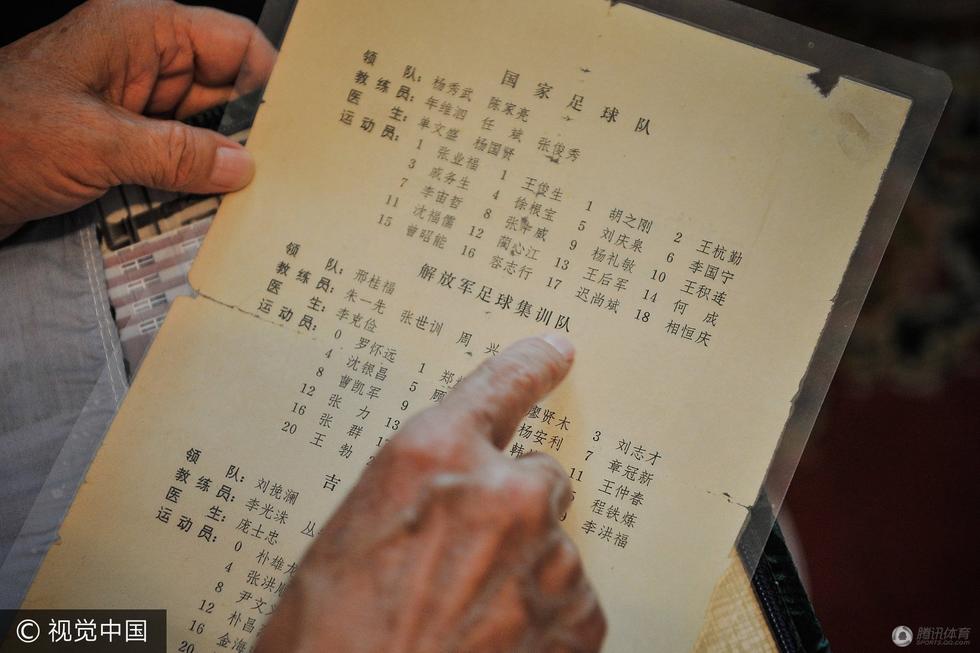 国家足球队
领队：杨秀武 陈家亮
教练员：年维泗 任斌 张俊秀
医生：单文盛 杨国贤
运动员：
1 张业福 1 王俊生 1 胡之刚 2 王杭勤
3 戚务生 4 徐根宝 5 刘庆泉 6 李国宁
7 李宙哲 8 9 杨礼敏 10 王积连
11 沈福儒 12 蔺心江 13 王后军 14 何成
15 曾昭能 16 容志行 17 迟尚斌 18 相恒庆
解放军足球集训队
领队：邢桂福
教练员：朱一先 张世训 周兴
医生：李克俭
运动员：
0 罗怀远 1 郑 廖贤木 3 刘志才
4 沈银昌 5 顾 杨安利 7 章冠新
8 曹凯军 9 韩 11 王仲春
12 张力 13 程铁炼
16 张群 李洪福
20 王勃
吉
领队：刘挽澜
教练员：李光洙 丛
医生：庞士忠
运动员：
0 朴雄
4 张洪
8 尹文
12 朴昌
16 金海
20
© 视觉中国
腾讯体育
SPORTS.QQ.COM